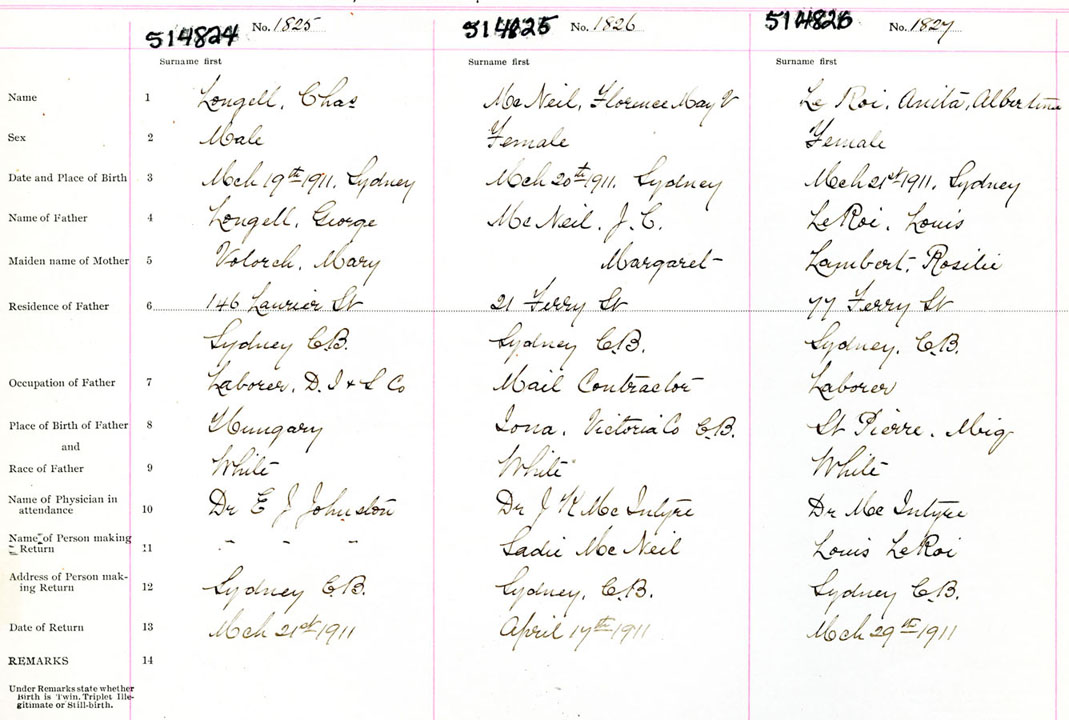 514824 No. 1825 514825 No. 1826 514826 No. 1827
Surname first Surname first Surname first
Name 1 Longell, Chas McNeil, Florence May V Le Roi, Anita, Albertina
Sex 2 Male Female Female
Date and Place of Birth 3 Mch 19th 1911, Sydney Mch 20th 1911, Sydney Mch 21st 1911, Sydney
Name of Father 4 Longell, George McNeil, J. C. LeRoi, Louis
Maiden name of Mother 5 Volorch, Mary Margaret Lambert, Rosilie
Residence of Father 6 146 Laurier St 21 Ferry St 77 Ferry St
Sydney C.B. Sydney C.B. Sydney, C.B.
Occupation of Father 7 Laborer, D. I & S Co Mail Contractor Laborer
Place of Birth of Father 8 Hungary Iona, Victoria Co C.B. St Pierre, Miq
and
Race of Father 9 White White White
Name of Physician in
attendance 10 Dr E J Johnston Dr J K McIntyre Dr McIntyre
Name of Person making
Return 11 " " " Sadie McNeil Louis LeRoi
Address of Person mak-
ing Return 12 Sydney C.B. Sydney, C.B. Sydney C.B.
Date of Return 13 Mch 21st 1911 April 17th 1911 Mch 29th 1911
REMARKS 14
Under Remarks state whether
Birth is Twin, Triplet Ille-
gitimate or Still-birth.